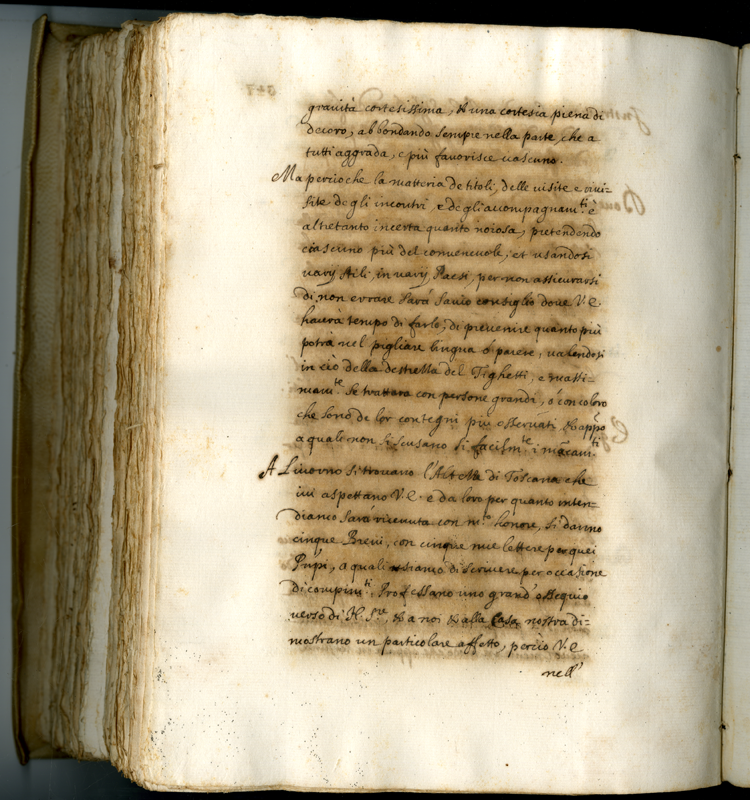 grauità cortesissima, & una cortesia piena di
decoro, abbondando sempre nella parte, che a
tutti aggrada, e più fauorisce ciascuno.
Ma percioche la matteria de titoli, delle uisite e riui=
site degli incontri, e degli accompagnam.ti è
altretanto incerta quanto noiosa, pretendendo
ciascuno più del conueneuole, et usandosi
uarij stili in uarij Paesi, per non assicurarsi
di non errare sarà sauio consiglio doue V. E.
hauerà tempo di farlo, di preuenire quanto più
potrà nel pigliare lingua ò parere, ualendosi
in ciò della destrezza del Tighetti, e massi=
mam.te se trattara con persone grandi, ò con coloro
che sono de lor contegni più osseruati & appo
a quali non si scusano si facilm.te i mācam.ti
A Liuorno si trouano l'Altezze di Toscana che
iui aspettano V. E. e da loro per quanto inten=
diamo sarà riceuuta con m.to honore, si danno
cinque Breui, con cinque mie lettere per quei
Prīpi, a quali usiamo di scriuere per occasione
di compim.ti, Professano uno grand' ossequio
uerso di N. S.re, & a noi & alla Casa nostra di=
mostrano un particolare affetto, perciò V. E.
nell'